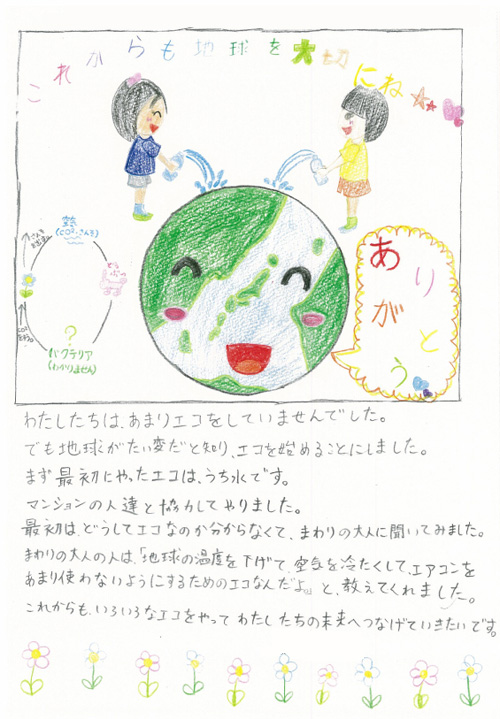 これからも地球を大切にね
空気
(CO2、さんそ)
どうぶつ
?
バクテリア
(わかりません)
ありがとう
わたしたちは、あまりエコをしていませんでした。
でも地球がたい変だと知り、エコを始めることにしました。
まず最初にやったエコは、うち水です。
マンションの人達と協力してやりました。
最初は、どうしてエコなのか分からなくて、まわりの大人に聞いてみました。
まわりの大人の人は、「地球の温度を下げて、空気を冷たくして、エアコンを
あまり使わないようにするためのエコなんだよ。」と、教えてくれました。
これからも、いろいろなエコをやって わたしたちの未来へつなげていきたいです。